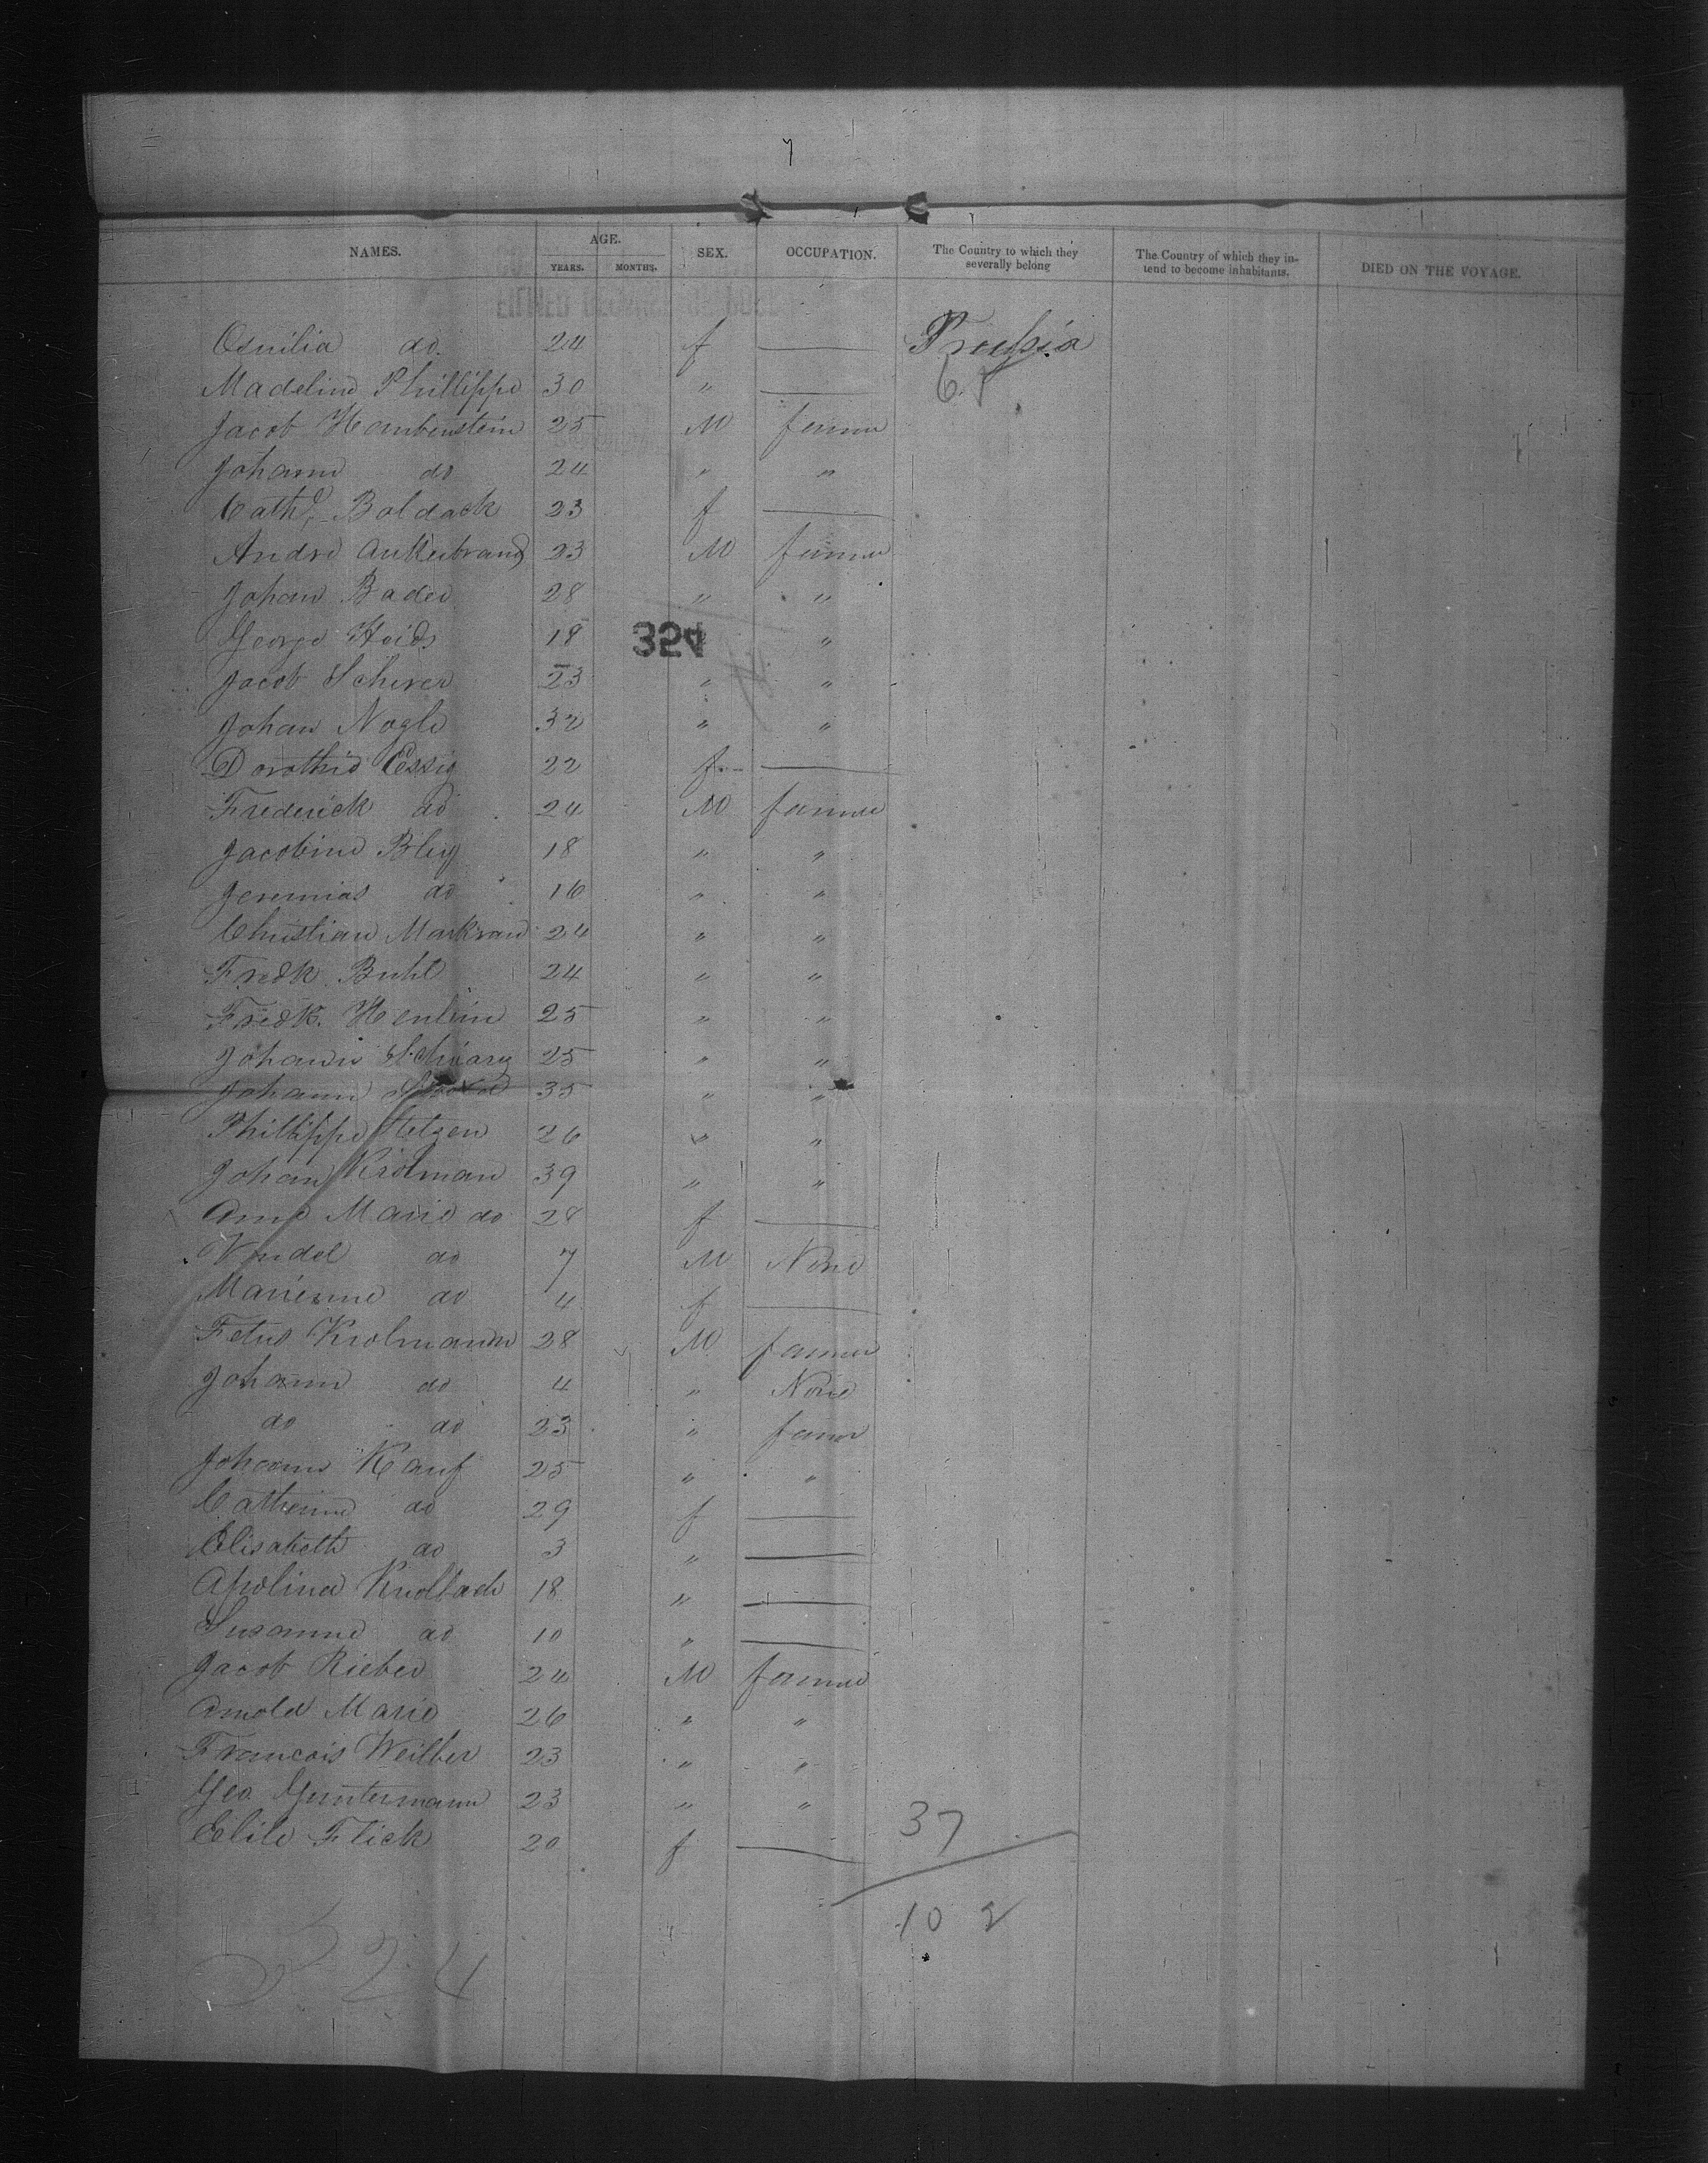 7
NAMES. AGE. YEARS. MONTHS. SEX. OCCUPATION. The Country to which they severally belong The Country of which they intend to become inhabitants. DIED ON THE VOYAGE.
do. 24 f — Prussia
Madeline Phillippe 30 " —
Jacob Hambenstein 25 M farmer
Johann do 24 " "
Cath. Boldack 23 f —
Andre 23 M farmer
Johan Bader 28 " "
George Heids 18 "
354
Jacob Schirer 23 " "
Johan Nagle 32 " "
Dorothie Essig 22 f —
Frederick do 24 M farmer
Jacobine Bley 18 " "
Jeremias do 16 " "
Christian 24 " "
Fredk. Buhl 24 " "
Fredk. Henlein 25 " "
Johann Schwarz 25 " "
Johann 35 " "
Phillippe Stetzen 26 " "
Johan Krolman 39 " "
Anne Marie do 28 f —
do 7 M None
Marienne do 4 f —
Krolmann 28 M farmer
Johann do 4 " None
do do 23 " farmer
Johann Kauf 25 " "
Catherine do 29 f —
Elisabeth do 3 " —
Apolina 18 " —
Susanne do 10 " —
Jacob Rieber 24 M farmer
Arnold Marie 26 " "
Francois Weilber 23 " "
Geo Guntermann 23 " "
Elile Flick 20 f —
37
102
324